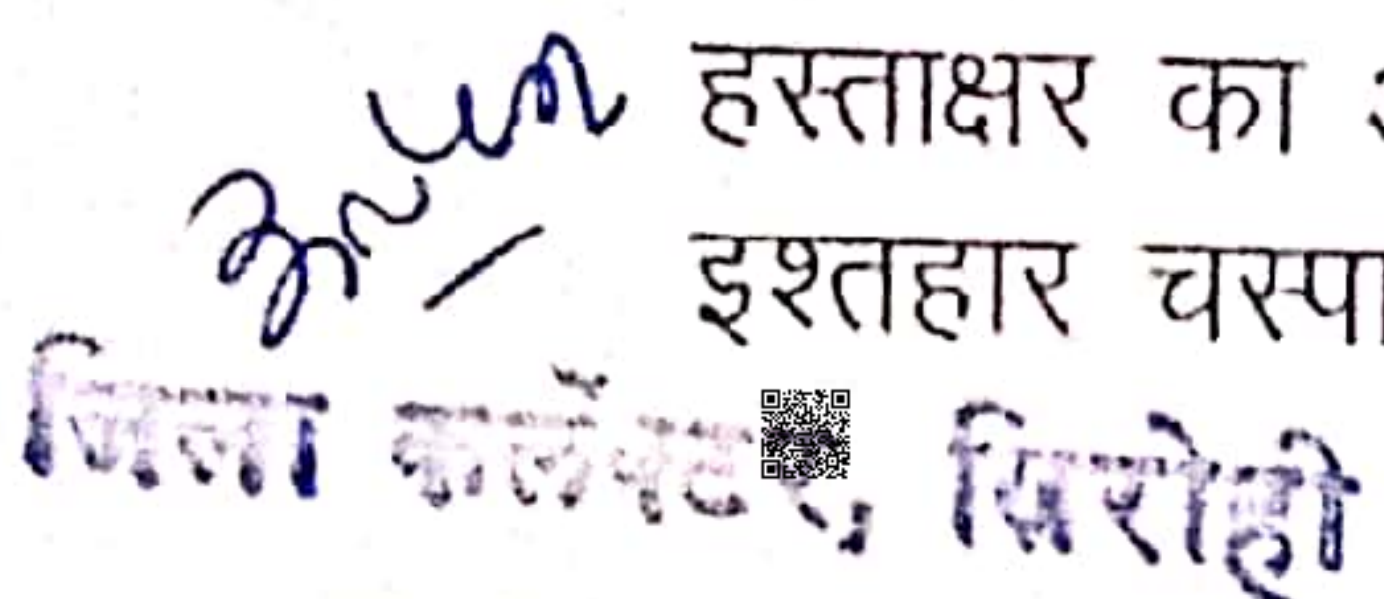 हस्ताक्षर का
इश्तहार चस्पा
जिला कलेक्टर, सिरोही